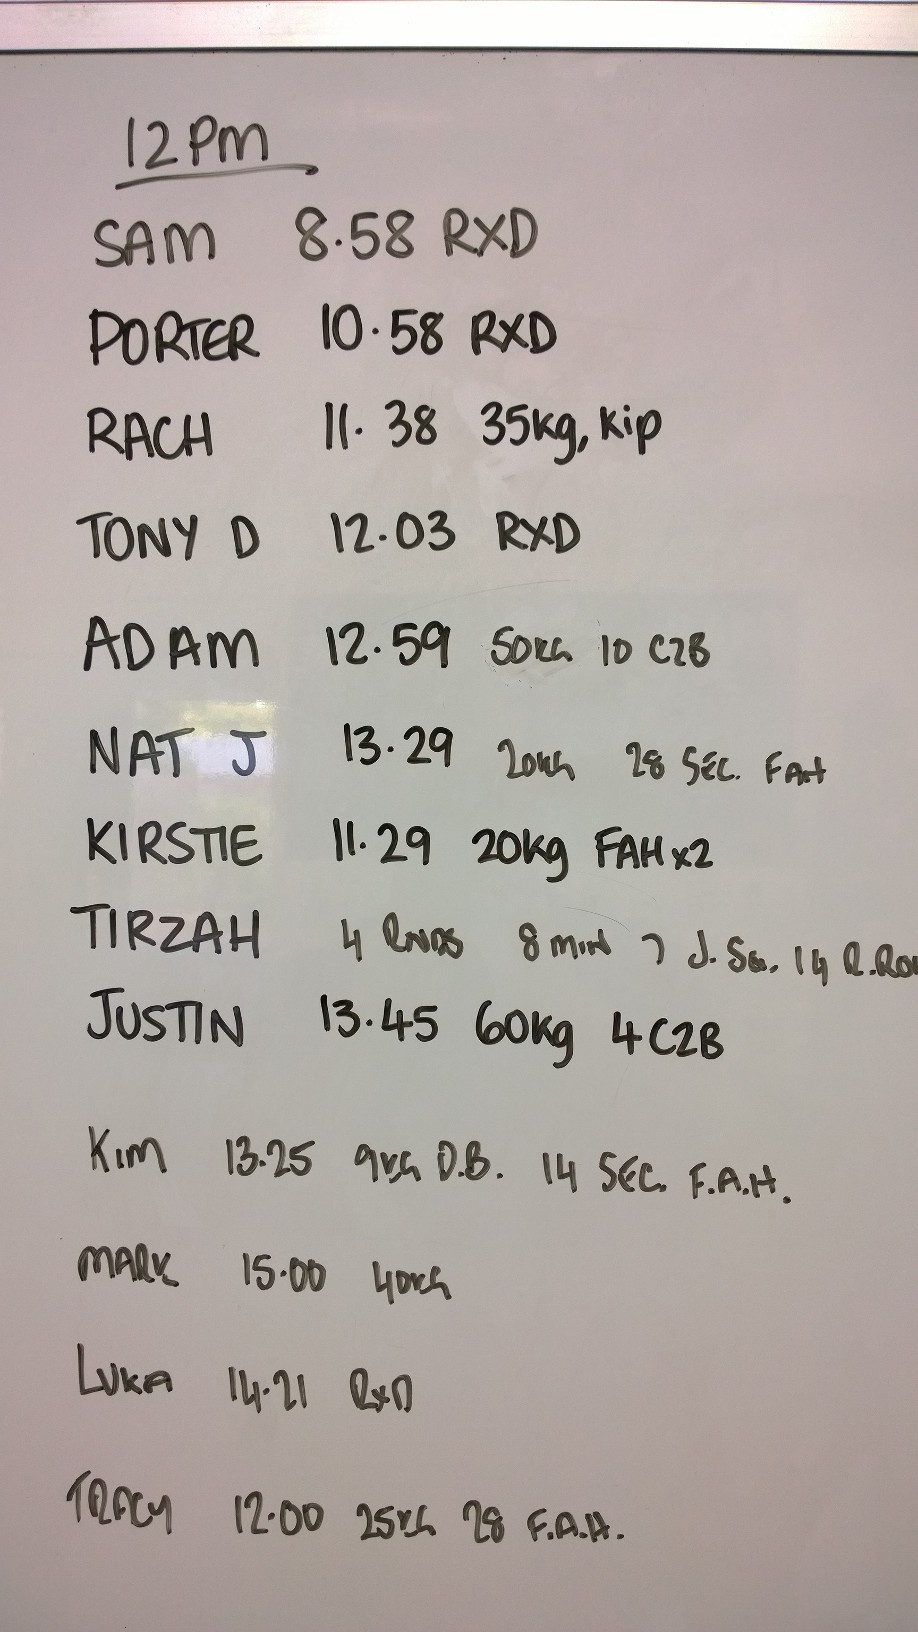 12Pm
SAM 8.58 RXD
PORTER 10.58 RXD
RACH 11.38 35kg, kip
TONY D 12.03 RXD
ADAM 12.59 50KG 10 C2B
NAT J 13.29 20KG 28 SEC. FAH
KIRSTIE 11.29 20kg FAH x2
TIRZAH 4 RNDS 8 MIN 7 J. SQ. 14 R.ROW
JUSTIN 13.45 60kg 4 C2B
KIM 13.25 9KG D.B. 14 SEC. F.A.H.
MARK 15.00 40KG
LUKA 14.21 RxD
TRACY 12.00 25KG 28 F.A.H.